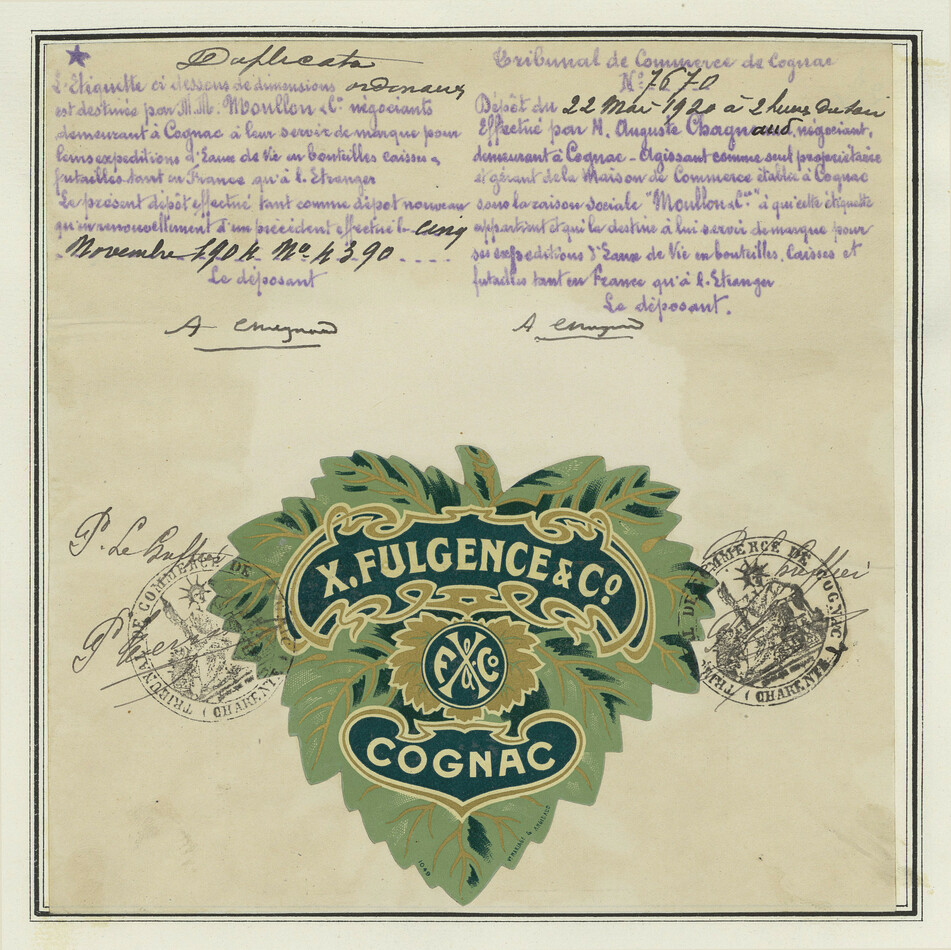 Duplicata
L'Etiquette ci dessous de dimensions ordinaires
est destinée par M.M. Moullon & Cie négociants
demeurant à Cognac à leur servir de marque pour
leurs expéditions d'Eaux de Vie en bouteilles caisses &
futailles tant en France qu'à l'Etranger
Le présent dépôt effectué tant comme dépôt nouveau
qu'en renouvellement d'un précédent effectué le Cinq
Novembre 1904 No 4390
Le déposant
Tribunal de Commerce de Cognac
No 7670
Dépôt du 22 Mai 1920 à 2 heures du soir
Effectué par M. Auguste Chagnaud, négociant,
demeurant à Cognac - Agissant comme seul propriétaire
et gérant de la Maison de Commerce établie à Cognac
sous la raison sociale "Moullon & Cie" à qui cette étiquette
appartient et qui la destine à lui servir de marque pour
ses expéditions d'Eaux de Vie en bouteilles, Caisses et
futailles tant en France qu'à l'Etranger
Le déposant.
X. FULGENCE & Co
F & Co
COGNAC
1048
TRIBUNAL DE COMMERCE DE COGNAC
(CHARENTE)
TRIBUNAL DE COMMERCE DE COGNAC
(CHARENTE)